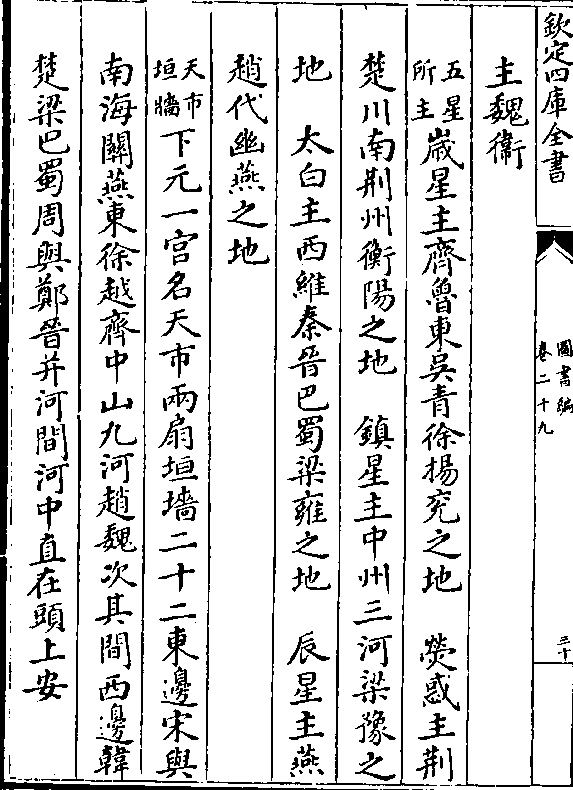 欽定四庫全書
圖書編
卷二十九
三十
主魏衛
五星所主
歲星主齊魯東吳青徐揚兖之地　熒惑主荆
楚川南荆州衡陽之地　鎮星主中州三河梁豫之
地　太白主西維秦晉巴蜀梁雍之地　辰星主燕
趙代幽燕之地
天市垣牆
下元一宮名天市兩扇垣墻二十二東邊宋與
南海關燕東徐越齊中山九河趙魏次其間西邊韓
楚梁巴蜀周與鄭晉并河間河中直在頭上安